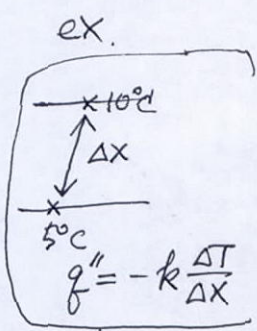 ex.
10°C
ΔX
5°C
q" = -k ΔT/ΔX